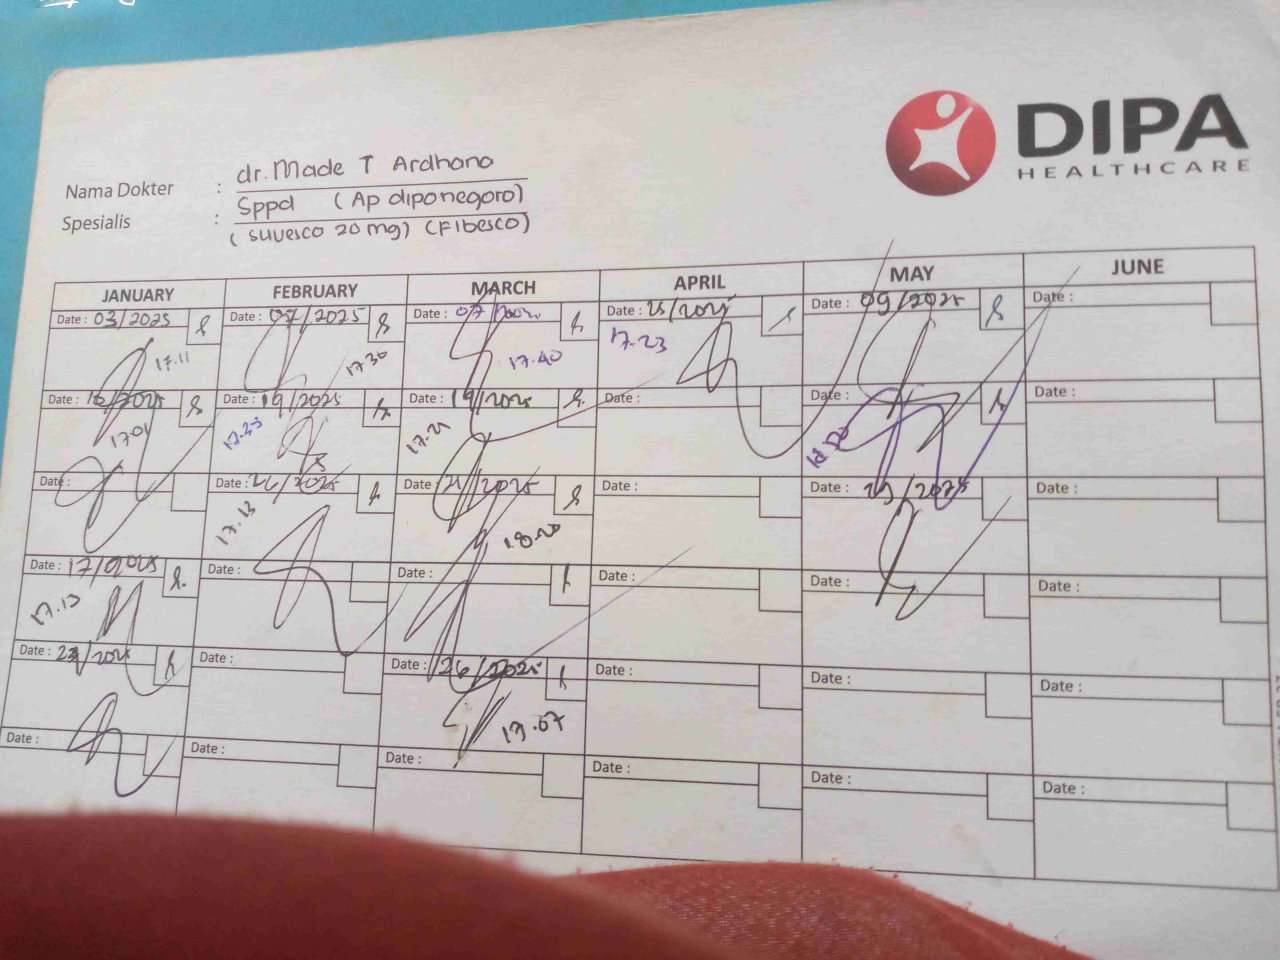 DIPA
HEALTHCARE
Nama Dokter : dr. Made T Ardhana
Spesialis : Sppd (Ap diponegoro)
(suvesco 20 mg) (Fibesco)
JANUARY FEBRUARY MARCH APRIL MAY JUNE
Date : 03/2025 Date : 07/2025 Date : 07 Date : 25/2025 Date : 09/2025 Date :
17.11 17.30 17.40 17.23
Date : /2025 Date : 19/2025 Date : 19/2025 Date : Date : Date :
17.01 17.23 17.21
Date : Date : /2025 Date : 21/2025 Date : Date : /2025 Date :
17.13 18.20
Date : 17/2025 Date : Date : Date : Date : Date :
17.13
Date : /2025 Date : Date : 26/2025 Date : Date : Date :
13.07
Date : Date : Date : Date : Date : Date :